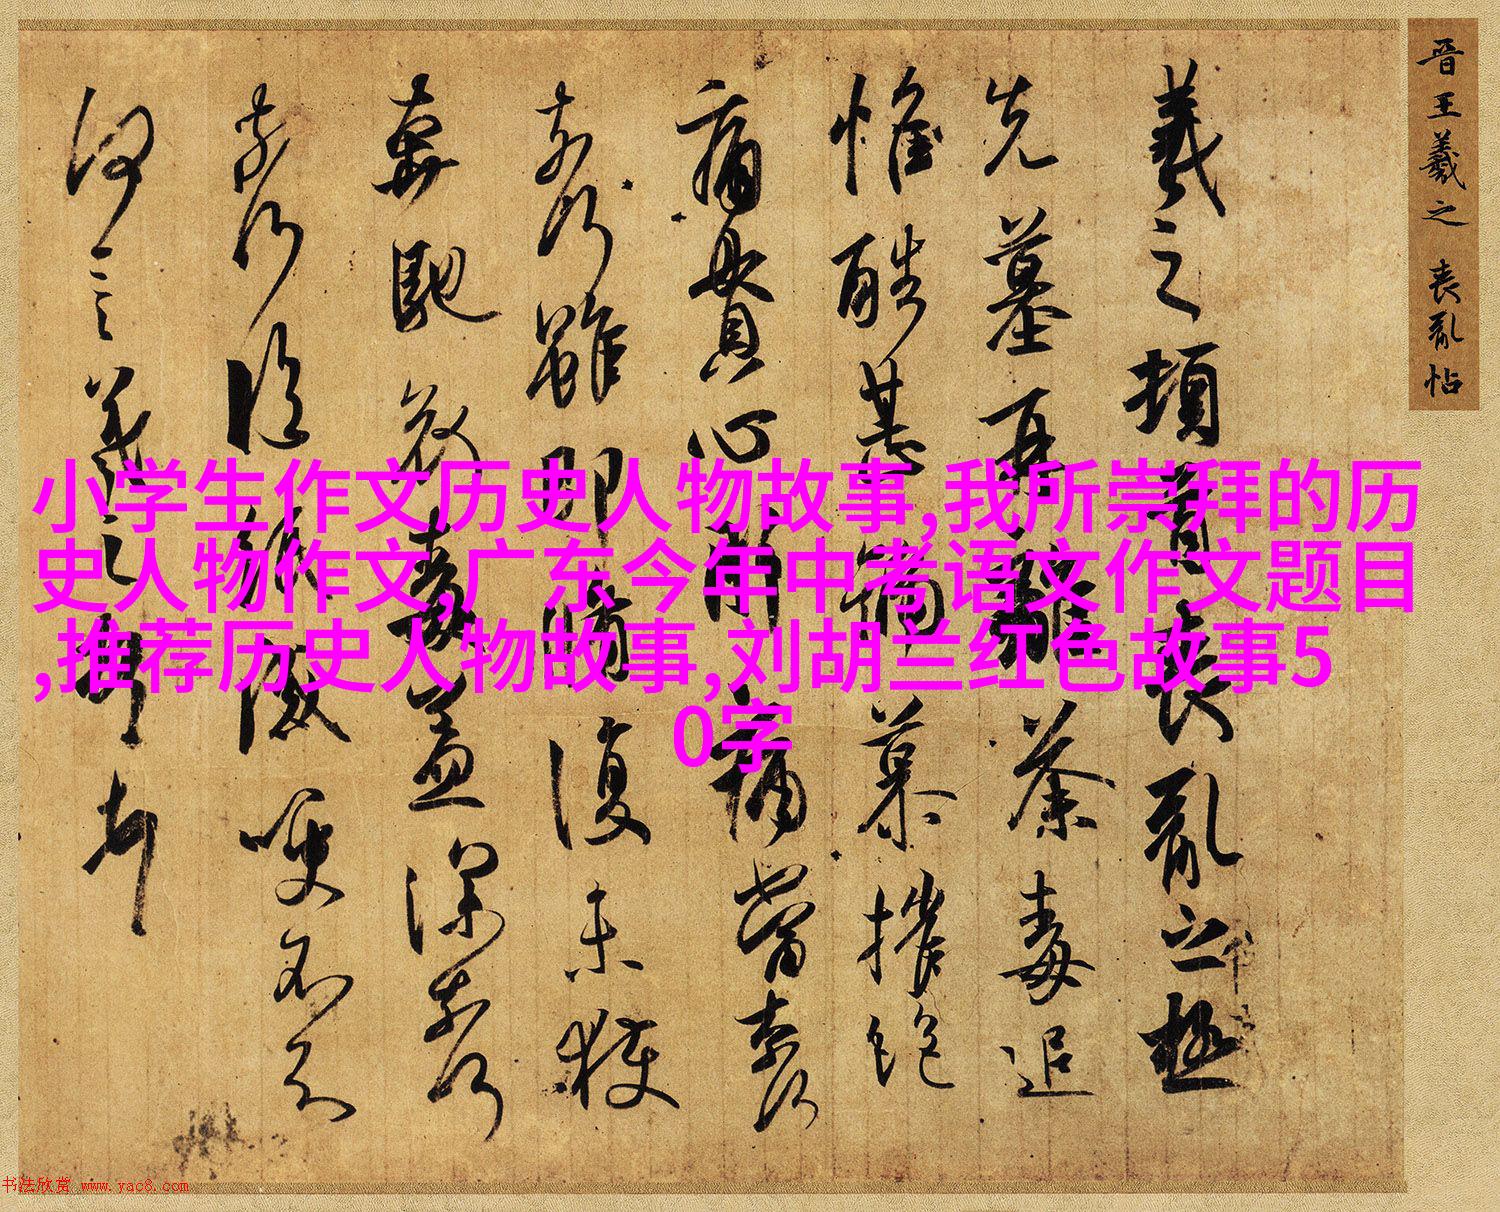 小学生作文历史人物故事,我所崇拜的历
史人物作文,广东今年中考语文作文题目
,推荐历史人物故事,刘胡兰红色故事5
0字
晋王羲之 喪亂帖
羲之頓首喪亂之極
先墓再離荼毒追
惟酷甚號慕摧絕
痛貫心肝痛當奈何
奈何雖即脩復未獲
奔馳哀毒益深奈何
奈何臨紙感哽不知
何言羲之頓首頓首
书法欣赏 www.yac8.com